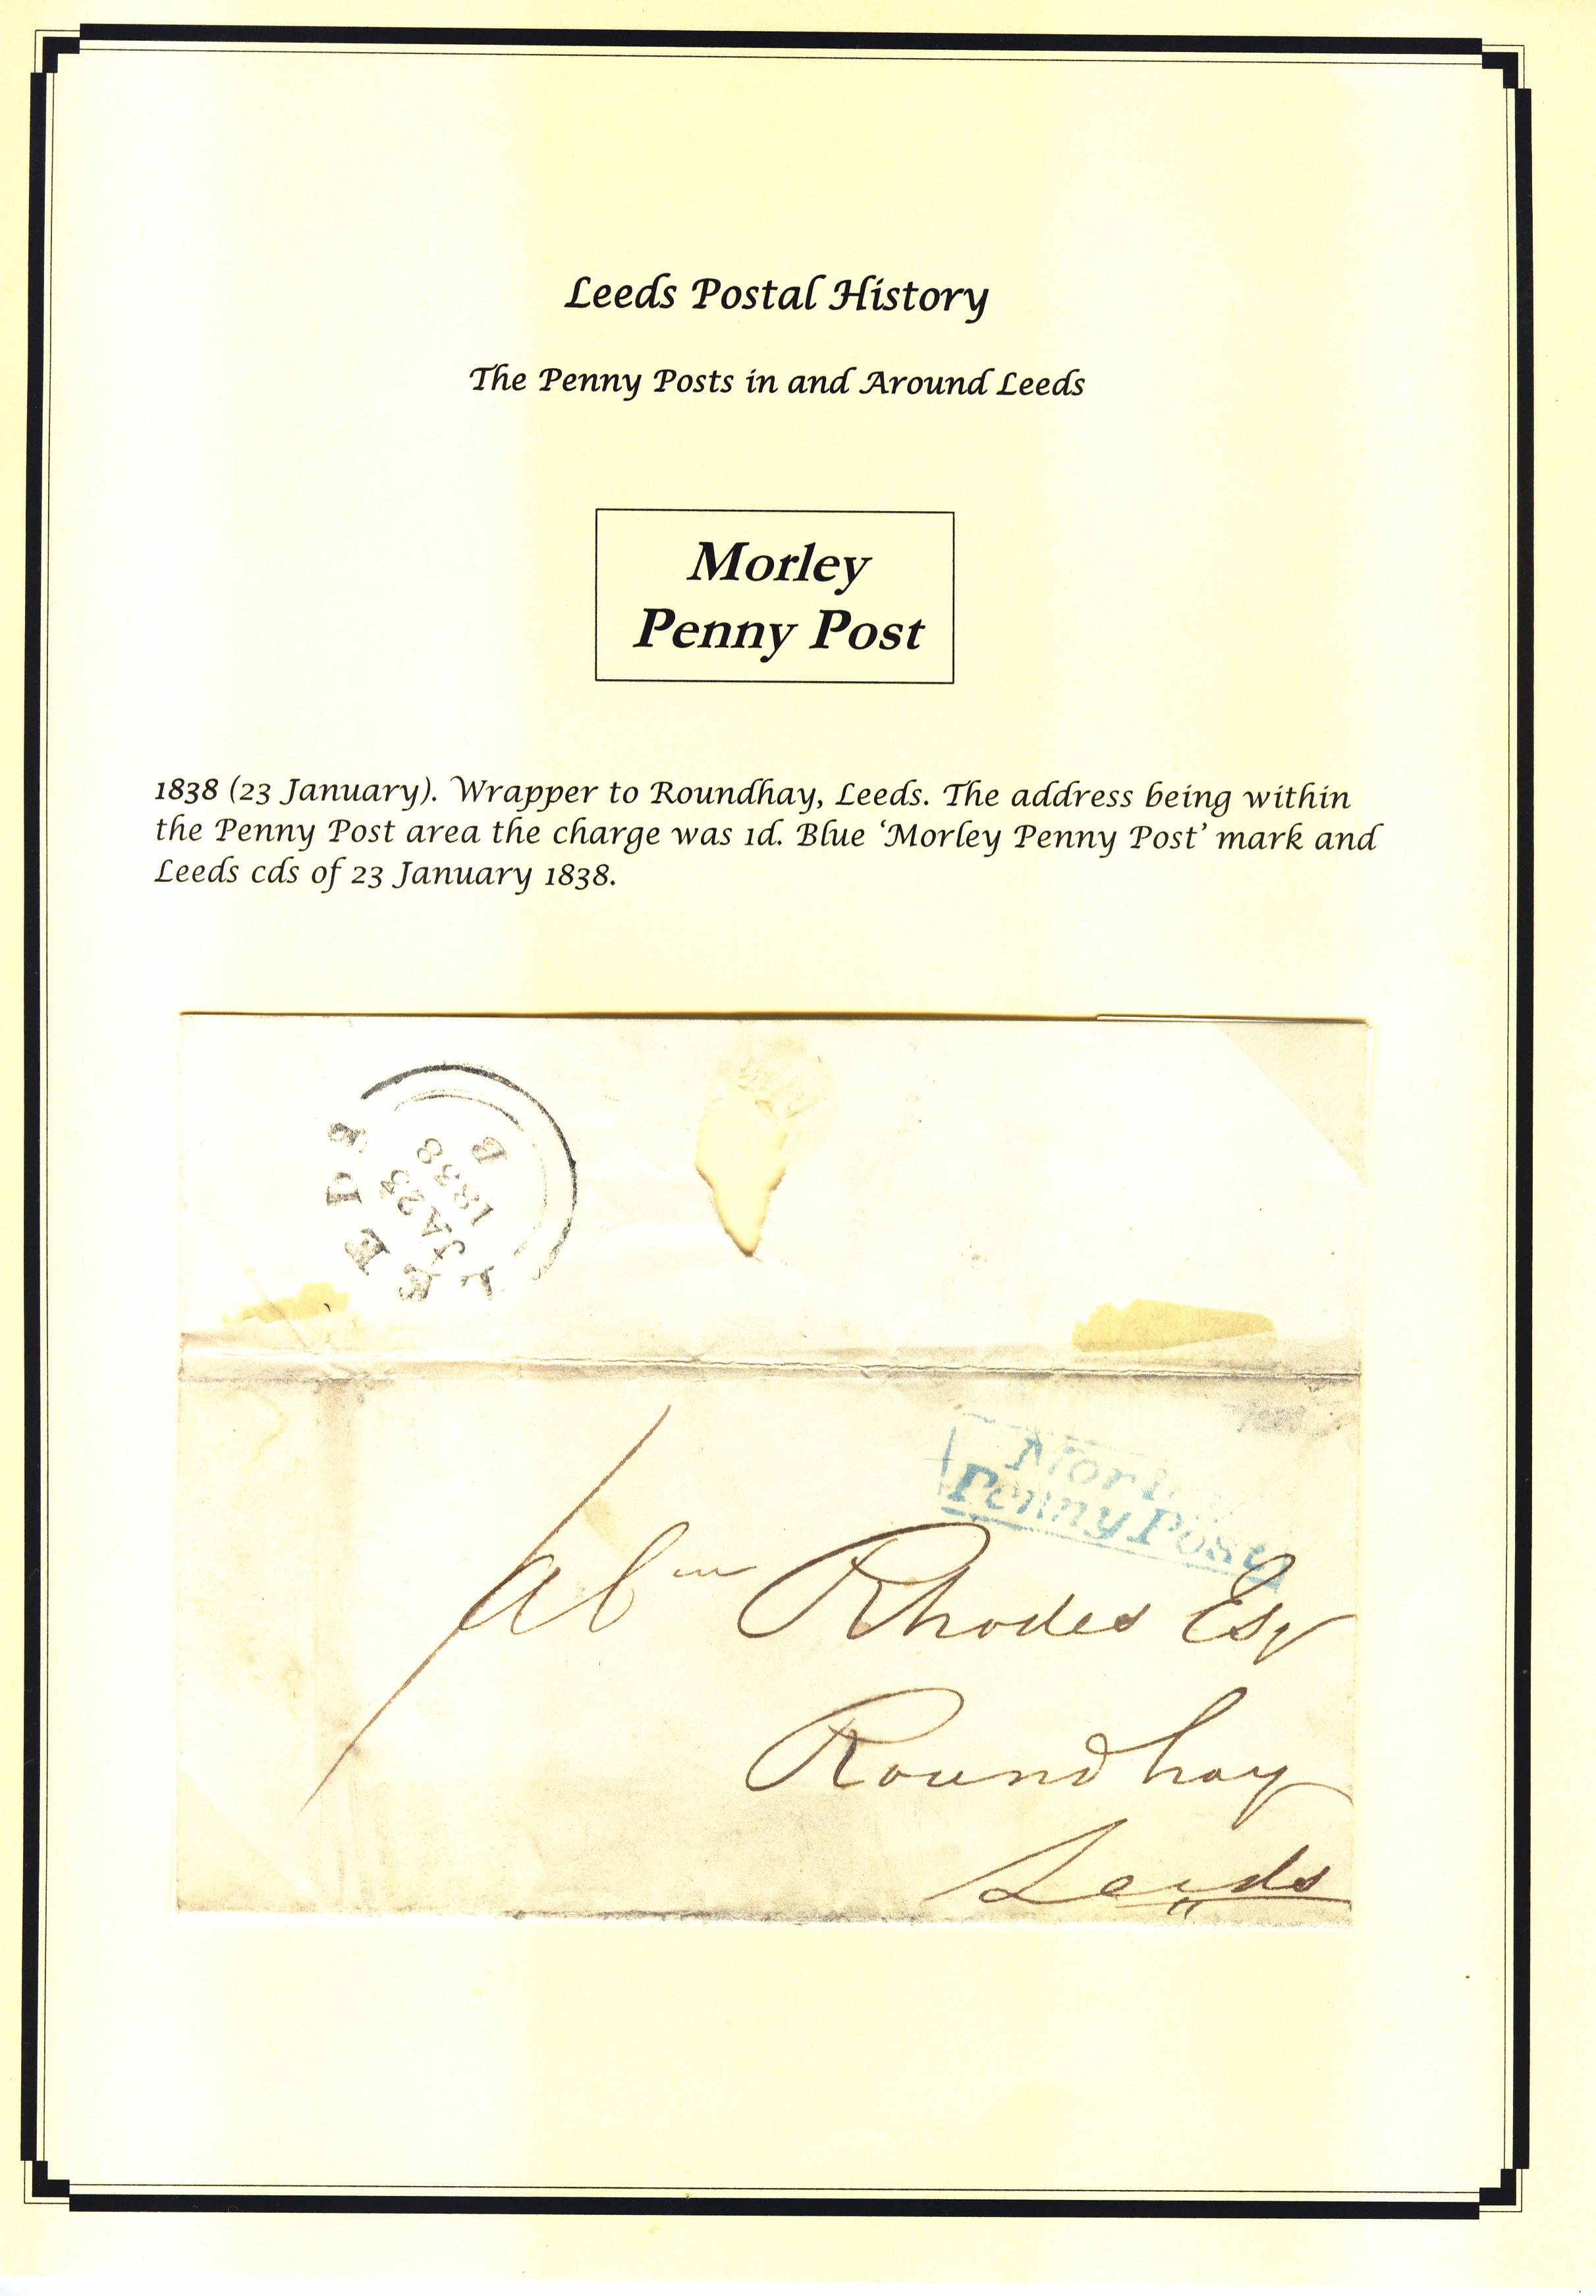 Leeds Postal History
The Penny Posts in and Around Leeds
Morley
Penny Post
1838 (23 January). Wrapper to Roundhay, Leeds. The address being within
the Penny Post area the charge was 1d. Blue ‘Morley Penny Post’ mark and
Leeds cds of 23 January 1838.
LEEDS
JA 23
1838
B
Morley
Penny Post
Abm Rhodes Esq
Roundhay
Leeds